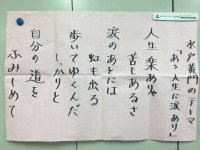 水戸黄門のテーマ
「あゝ人生に涙あり」
人生楽ありゃ
苦もあるさ
涙のあとには
虹も出る
歩いてゆくんだ
しっかりと
自分の道を
ふみしめて